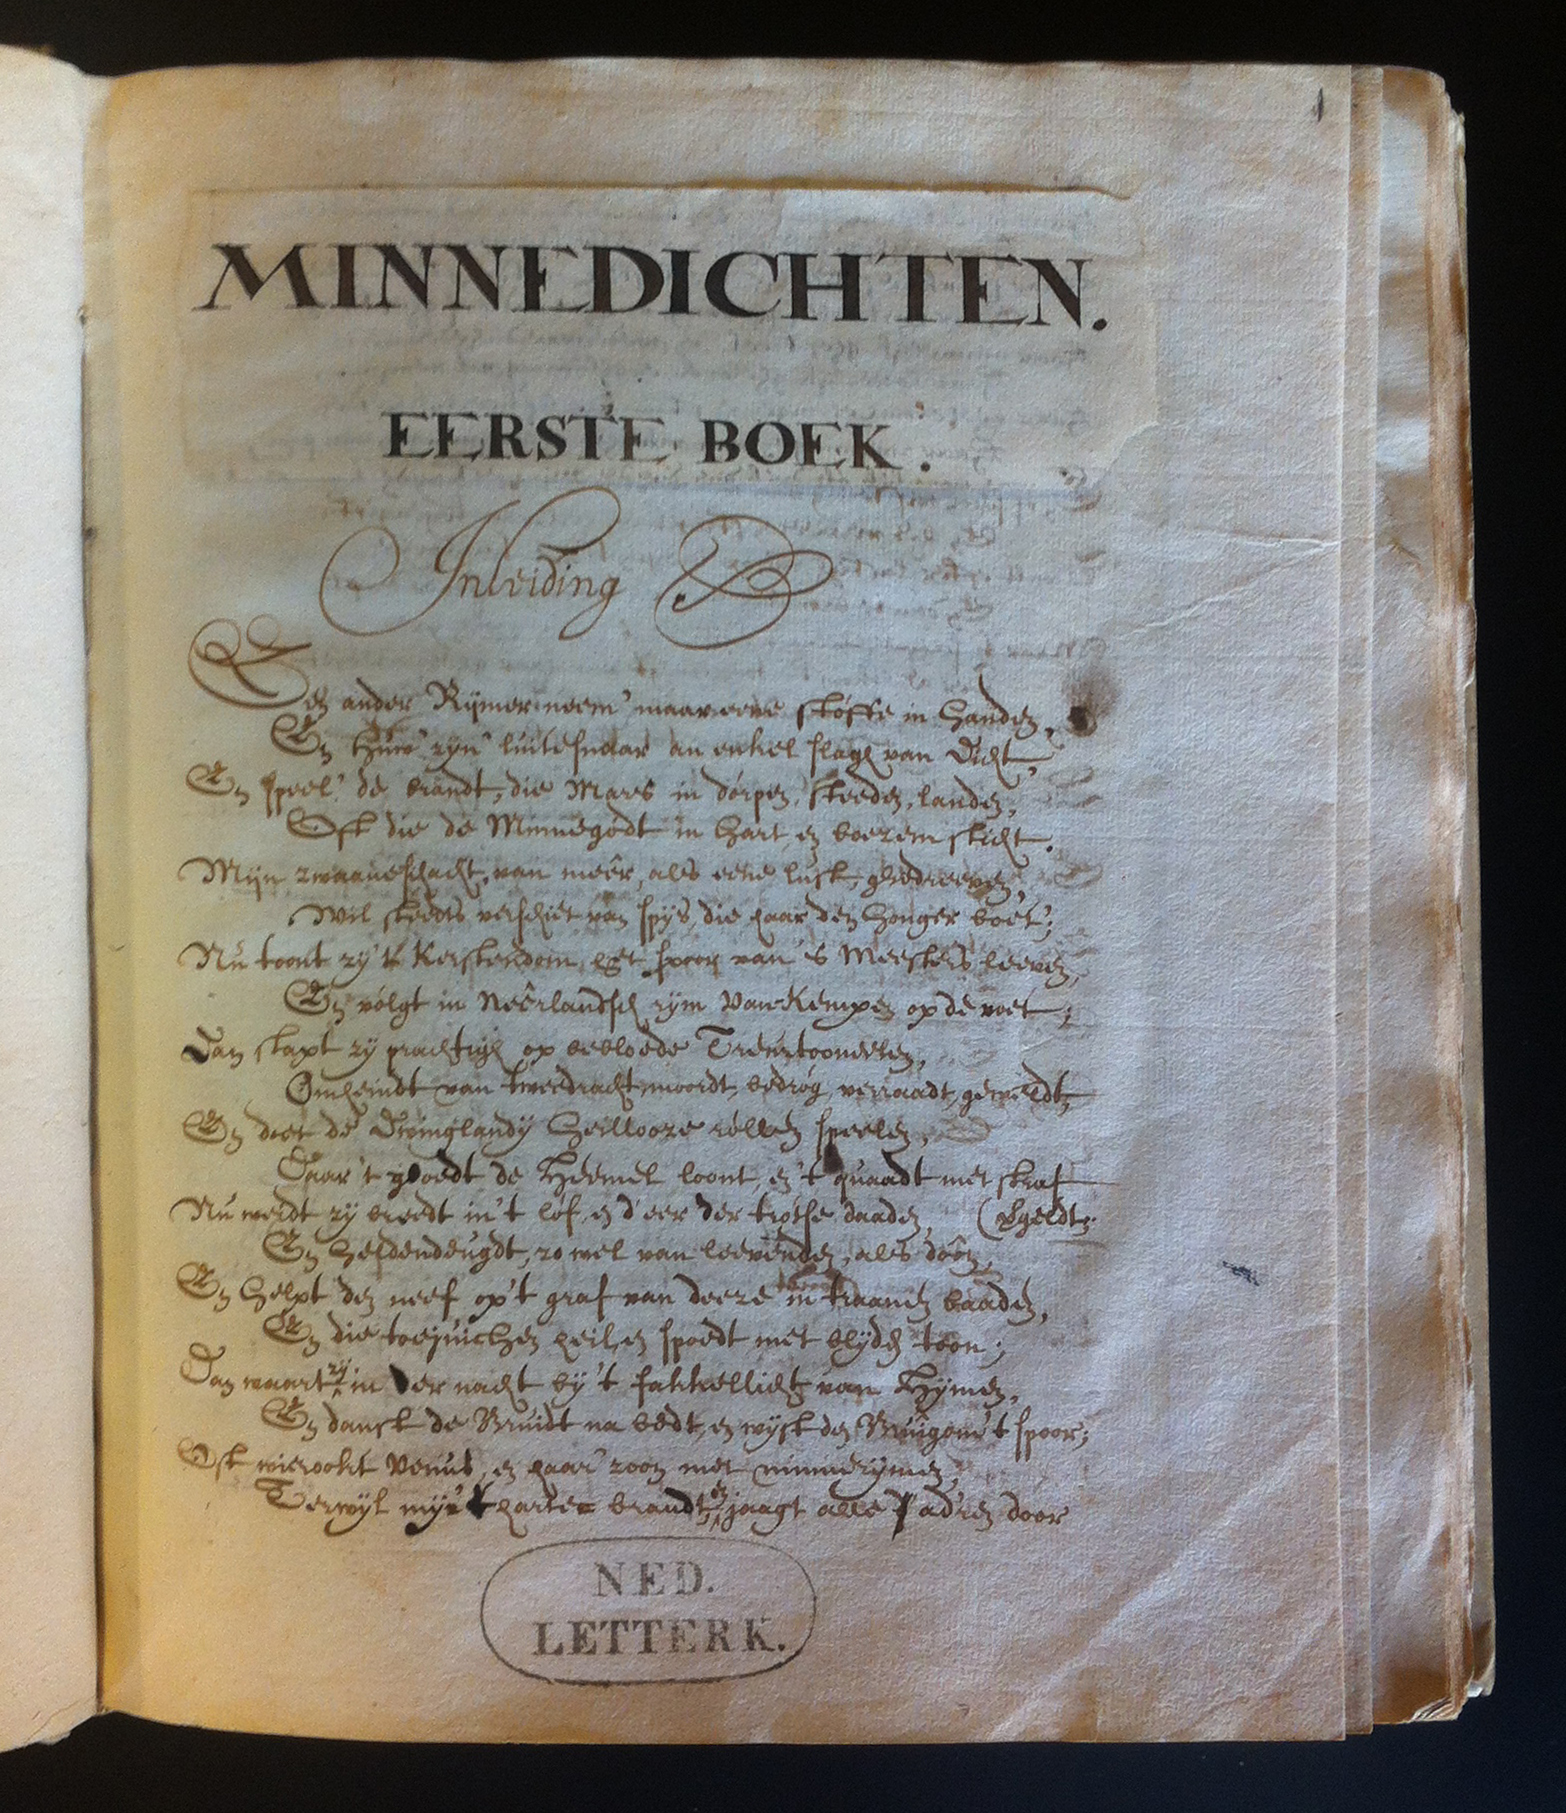 1
MINNEDICHTEN.
EERSTE BOEK.
Inleiding
Een ander Rijmer neem' maar eene stoffe in handen,
En huw' zyn' luitesnaar an enkel slagh van dicht,
En speel' de brandt, die Mars in dorpen, steeden, landen,
Oft die de Minnegodt in hart, en boezem sticht.
Mijn zwaaneschacht, van meêr, als eene lust, ghedreeven,
Wil steedts verschiet van spys, die haar den honger boet';
Nu toont zy 't Kerstendom het spoor van 's Meesters leeven,
En volgt in Neêrlandsch rijm Van Kempen op de voet;
Dan stapt zy prachtigh op bebloede Treurtooneelen,
Omheindt van tweedracht, moordt, bedrog, verraadt, geweldt,
En doet de Dwinglandy heillooze rollen speelen,
Daar 't goedt de Heemel loont, en 't quaadt met straf
Nu weidt zy breedt in 't lof, en d'eer der trotse daaden, (vgeldt;
En heldendeugdt, zo wel van leevenden, als doôn,
En helpt den neef op 't graf van deeze in traanen baaden,
En die toejuichen heil, en spoedt met blyden toon;
Dan waart zy in der nacht by 't fakkellicht van Hymen,
En danst de Bruidt na bedt, en wyst den Bruigom 't spoor;
Oft wierookt Venus, en haar' zoon met minnerymen,
Terwyl mijn harte brandt, en jaagt alle adren door
NED.
LETTERK.